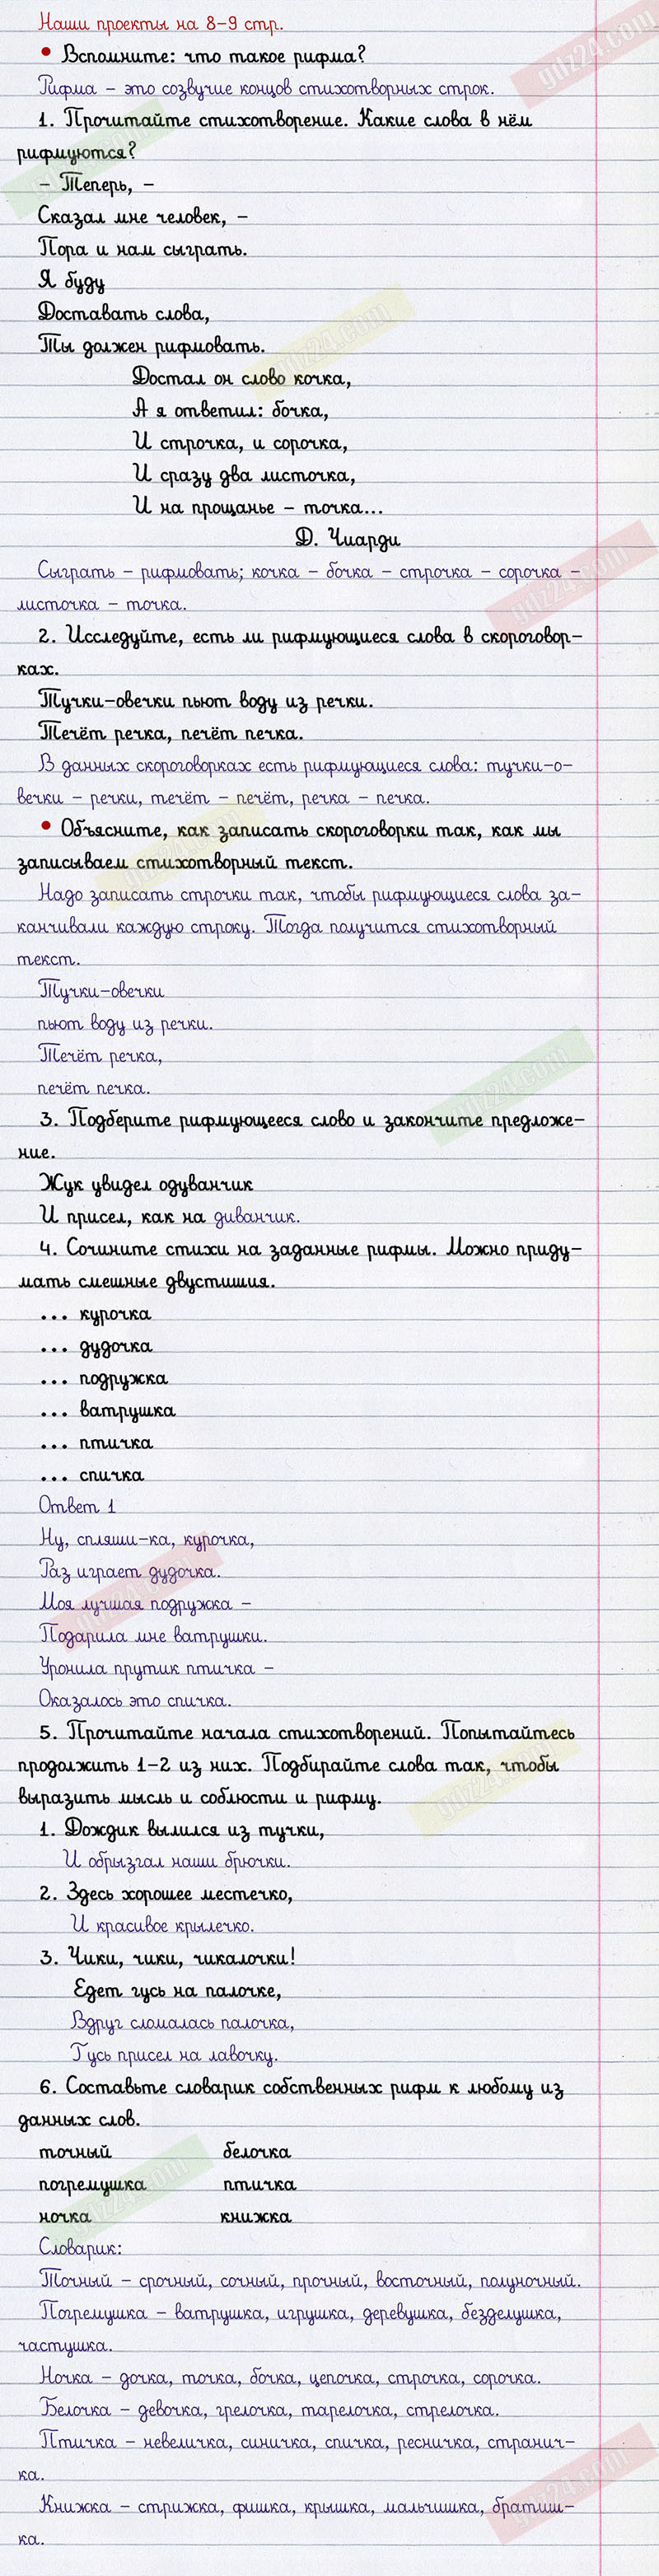 Наши проекты на 8-9 стр.
• Вспомните: что такое рифма?
Рифма – это созвучие концов стихотворных строк.
1. Прочитайте стихотворение. Какие слова в нём
рифмуются?
– Теперь, –
Сказал мне человек, –
Пора и нам сыграть.
Я буду
Доставать слова,
Ты должен рифмовать.
Достал он слово кочка,
А я ответил: бочка,
И строчка, и сорочка,
И сразу два листочка,
И на прощанье – точка...
Д. Чиарди
Сыграть – рифмовать; кочка – бочка – строчка – сорочка –
листочка – точка.
2. Исследуйте, есть ли рифмующиеся слова в скороговор-
ках.
Тучки-овечки пьют воду из речки.
Течёт речка, печёт печка.
В данных скороговорках есть рифмующиеся слова: тучки-о-
вечки – речки, течёт – печёт, речка – печка.
• Объясните, как записать скороговорки так, как мы
записываем стихотворный текст.
Надо записать строчки так, чтобы рифмующиеся слова за-
канчивали каждую строку. Тогда получится стихотворный
текст.
Тучки-овечки
пьют воду из речки.
Течёт речка,
печёт печка.
3. Подберите рифмующееся слово и закончите предложе-
ние.
Жук увидел одуванчик
И присел, как на диванчик.
4. Сочините стихи на заданные рифмы. Можно приду-
мать смешные двустишия.
... курочка
... дудочка
... подружка
... ватрушка
... птичка
... спичка
Ответ 1
Ну, спляши-ка, курочка,
Раз играет дудочка.
Моя лучшая подружка –
Подарила мне ватрушки.
Уронила прутик птичка –
Оказалось это спичка.
5. Прочитайте начала стихотворений. Попытайтесь
продолжить 1-2 из них. Подбирайте слова так, чтобы
выразить мысль и соблюсти и рифму.
1. Дождик вылился из тучки,
И обрызгал наши брючки.
2. Здесь хорошее местечко,
И красивое крылечко.
3. Чики, чики, чикалочки!
Едет гусь на палочке,
Вдруг сломалась палочка,
Гусь присел на лавочку.
6. Составьте словарик собственных рифм к любому из
данных слов.
точный белочка
погремушка птичка
ночка книжка
Словарик:
Точный – срочный, сочный, прочный, восточный, полуночный.
Погремушка – ватрушка, игрушка, деревушка, безделушка,
частушка.
Ночка – дочка, точка, бочка, цепочка, строчка, сорочка.
Белочка – девочка, грелочка, тарелочка, стрелочка.
Птичка – невеличка, синичка, спичка, ресничка, странич-
ка.
Книжка – стрижка, фишка, крышка, мальчишка, братиш-
ка.
gdz24.com
gdz24.com
gdz24.com
gdz24.com
gdz24.com
gdz24.com
gdz24.com
gdz24.com
gdz24.com
gdz24.com